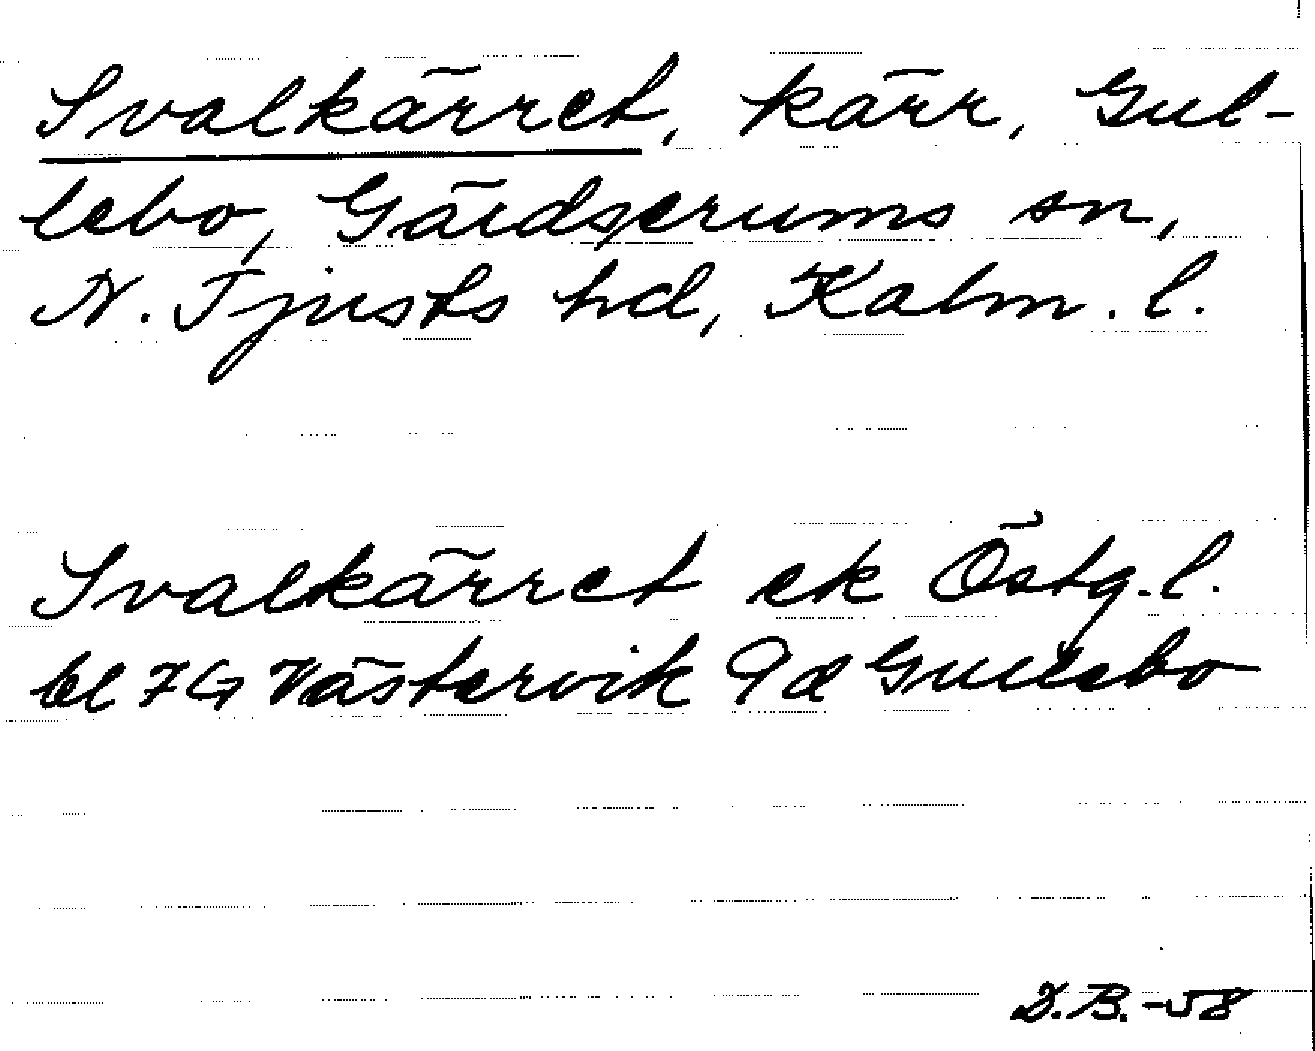 Svalkärret, kärr, Gul-
lebo, Gärdserums sn,
N. Tjusts hd, Kalm. l.
Svalkärret ek Östg. l.
bl 7G Västervik 9d Gullebo
D.B.-58